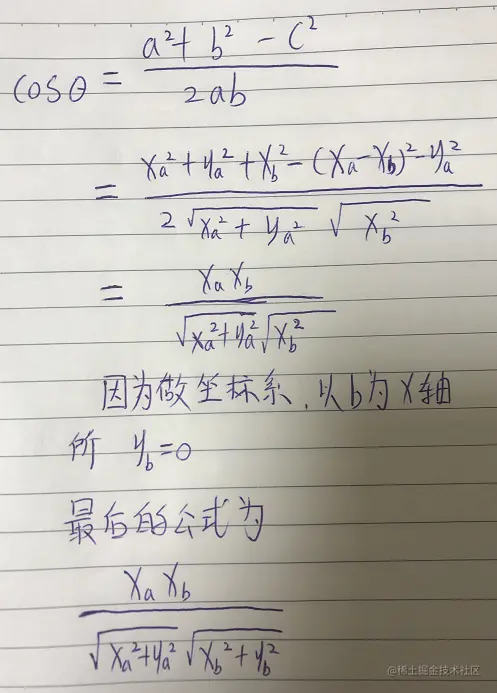 cosθ = (a² + b² - c²) / (2ab)
= (xₐ² + yₐ² + x_b² - (xₐ - x_b)² - yₐ²) / (2 √(xₐ² + yₐ²) √(x_b²))
= (xₐ x_b) / (√(xₐ² + yₐ²) √(x_b²))
因为做坐标系,以b为X轴
所 y_b = 0
最后的公式为
(xₐ x_b) / (√(xₐ² + yₐ²) √(x_b² + y_b²))
@稀土掘金技术社区